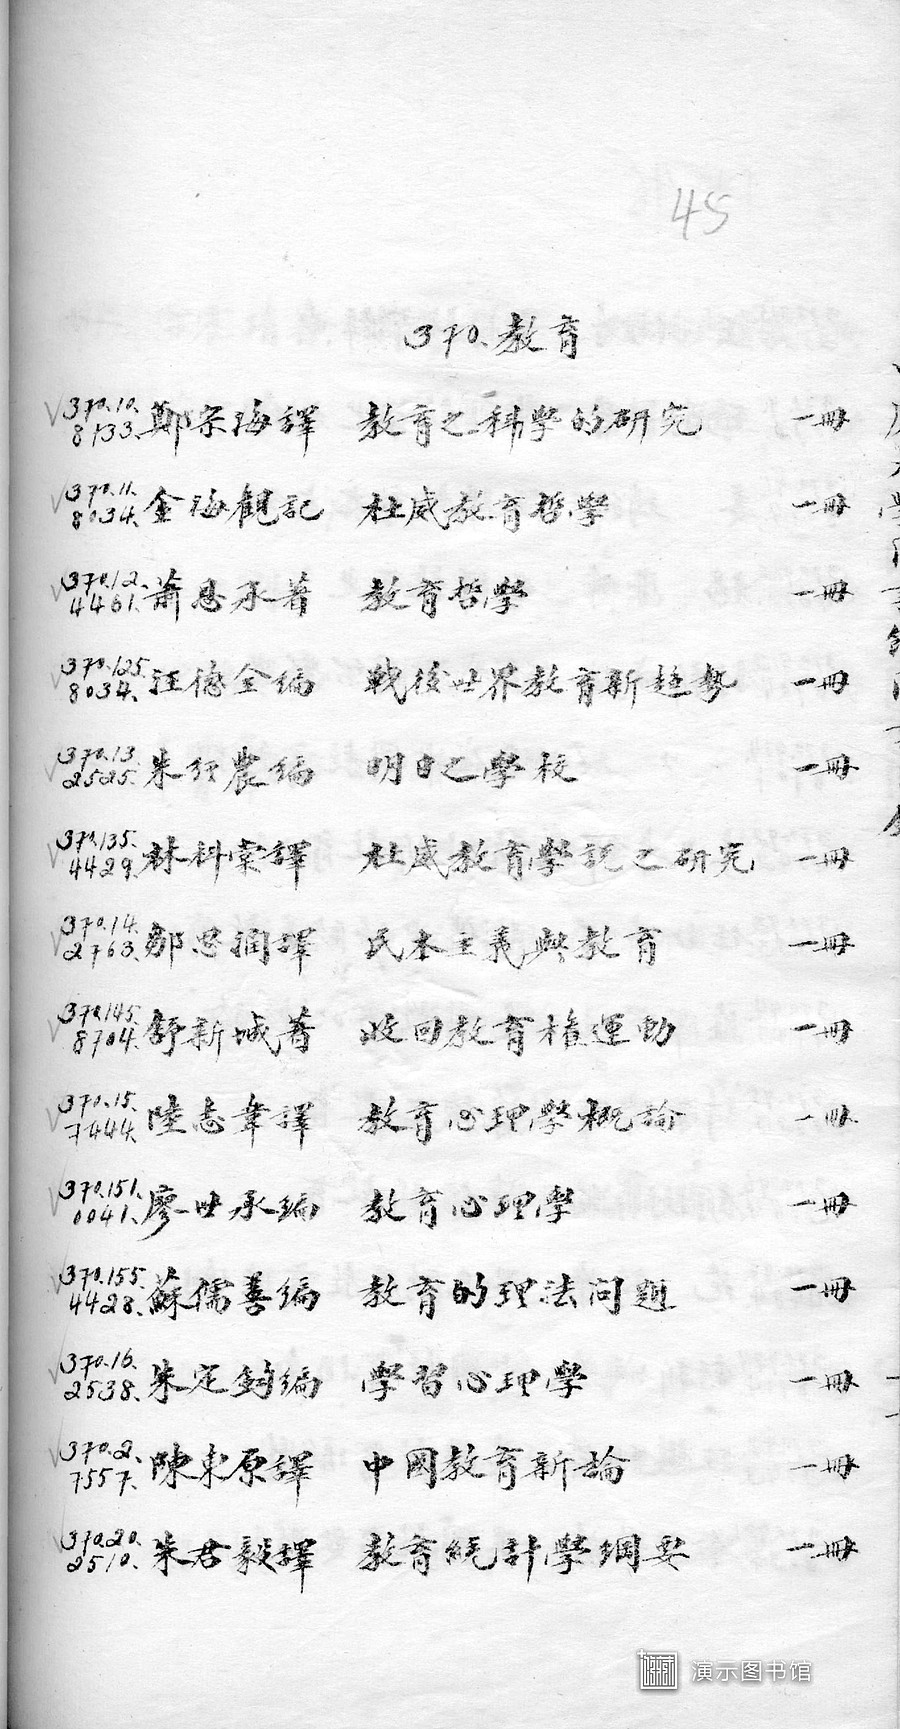 45
370. 教育
370.10. 8133. 鄭宗海譯 教育之科學的研究 一冊
370.11. 8034. 金海觀記 杜威教育哲學 一冊
370.12. 4461. 蕭恩承著 教育哲學 一冊
370.125. 8034. 汪德全編 戰後世界教育新趨勢 一冊
370.13. 2525. 朱經農編 明日之學校 一冊
370.135. 4429. 林科棠譯 杜威教育學說之研究 一冊
370.14. 2763. 鄒恩潤譯 民本主義與教育 一冊
370.145. 8704. 舒新城著 收回教育權運動 一冊
370.15. 7444. 陸志韋譯 教育心理學概論 一冊
370.151. 0041. 廖世承編 教育心理學 一冊
370.155. 4428. 蘇儒善編 教育的理法问題 一冊
370.16. 2538. 朱定鈞編 學習心理學 一冊
370.2. 7557. 陳東原譯 中國教育新論 一冊
370.20. 2510. 朱君毅譯 教育統計學綱要 一冊
演示图书馆